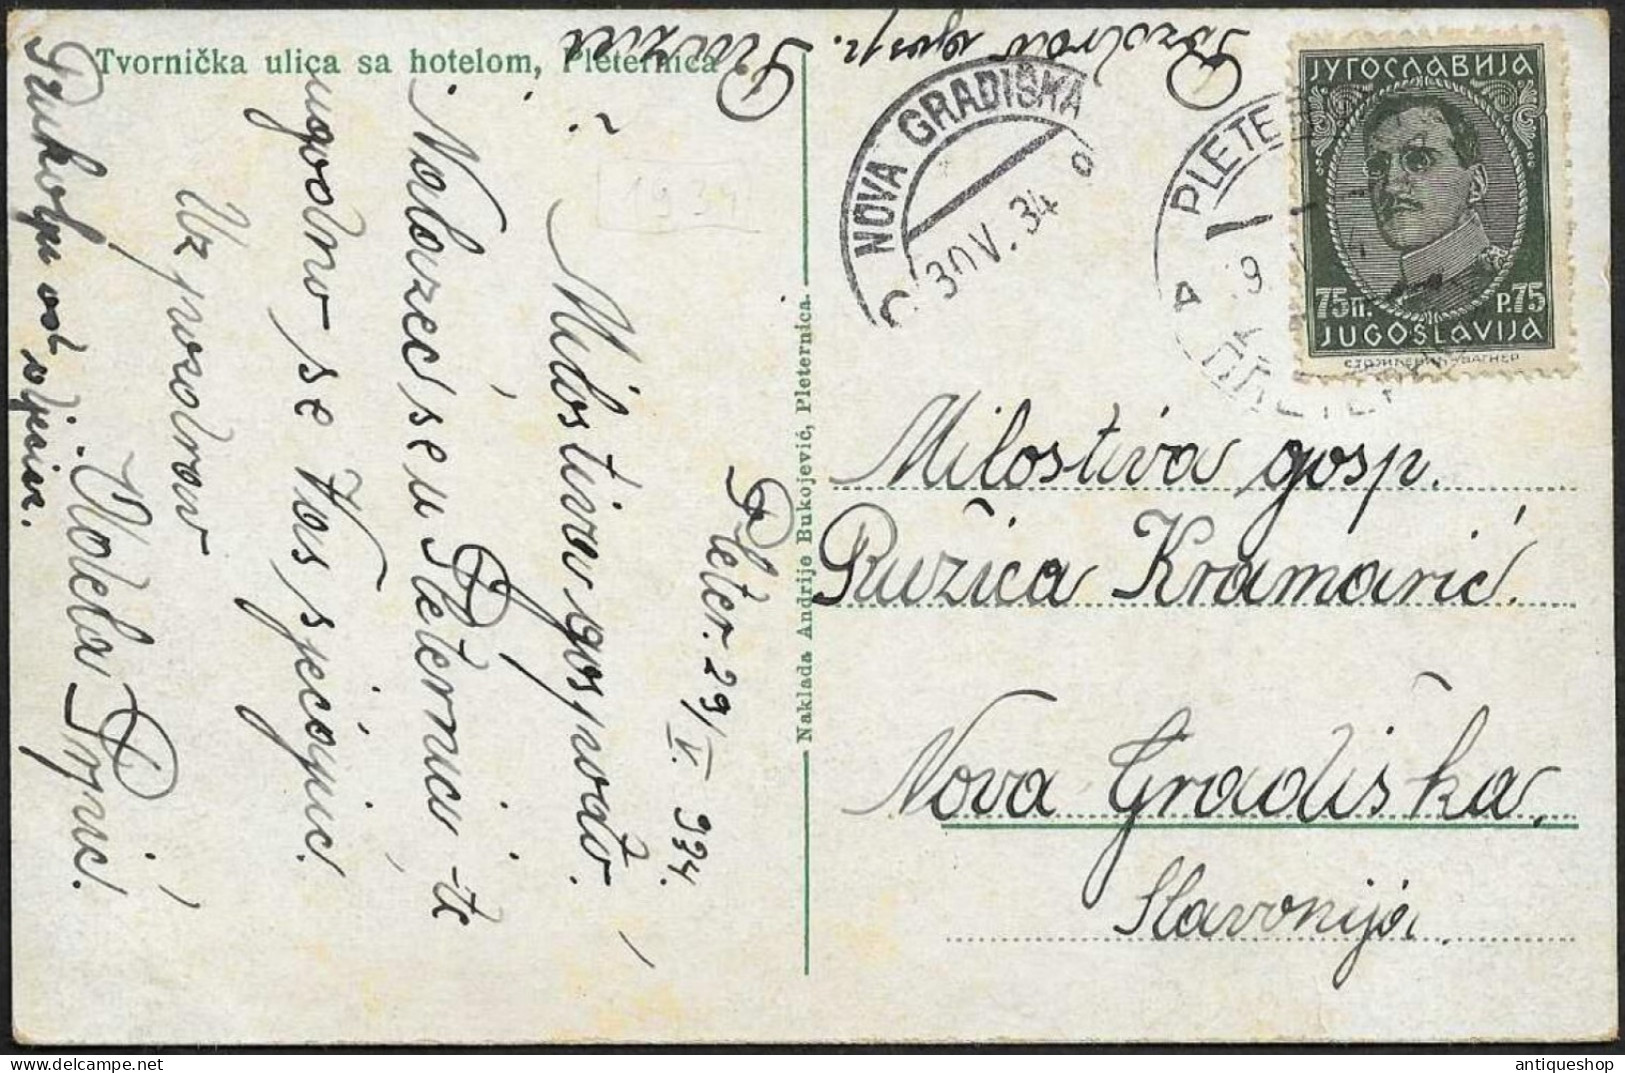 Tvornička ulica sa hotelom, Pleternica
Pleter. 29/V. 934.
Milostiva gospođo,
Nalazeć se u Pleternici te
ugodno se Vas sjećajući
Uz pozdrav
Adela
Rukolju od
Pozdrav gosp.
1934
Naklada Andrije Bukojević, Pleternica.
NOVA GRADIŠKA
30 V. 34
PLETE
A
9
ЈУГОСЛАВИЈА
75п. P.75
JUGOSLAVIJA
Milostiva gosp.
Ružica Kramarić.
Nova Gradiška,
Slavonija.
antiqueshop